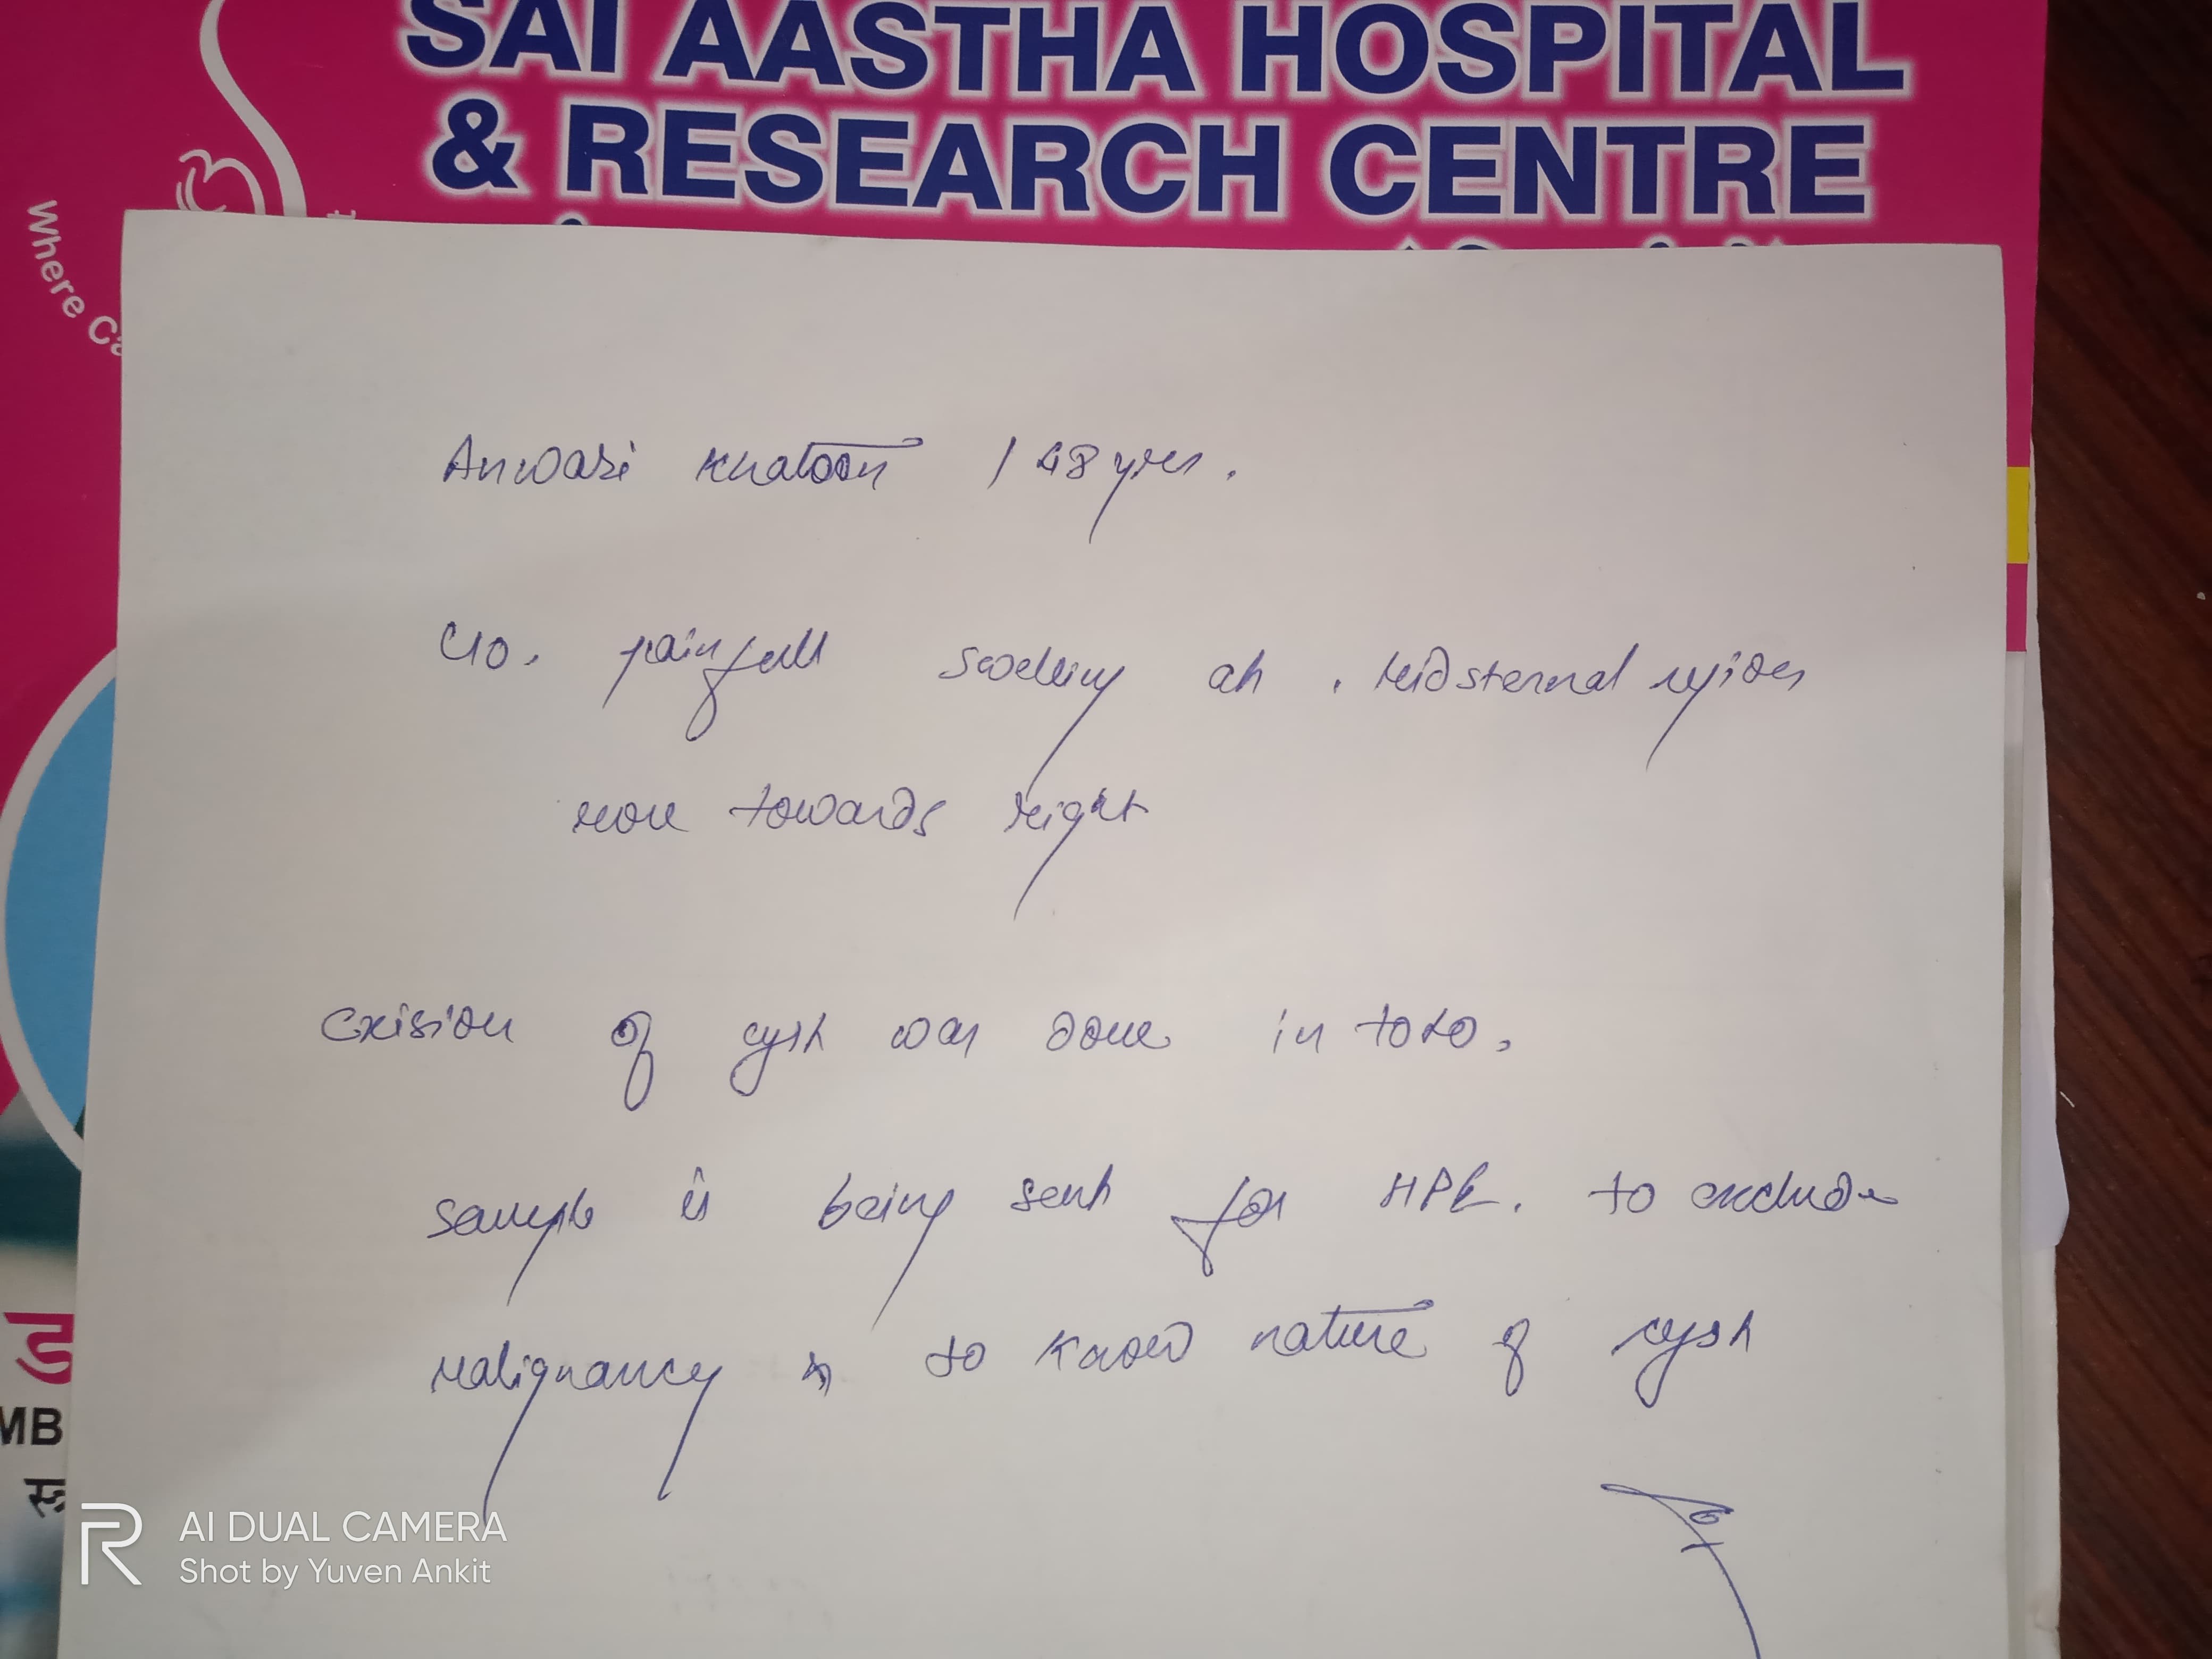 SAI AASTHA HOSPITAL
& RESEARCH CENTRE
Where Ca
Anwari Khatoon / 48 yrs.
C/o. painfull swelling at . Midsternal region
more towards right
Exision of cyst was done in toto.
sample is being sent for HPE. to exclude
malignancy & to know nature of cyst
ड
MB
स्त्र
R AI DUAL CAMERA
Shot by Yuven Ankit